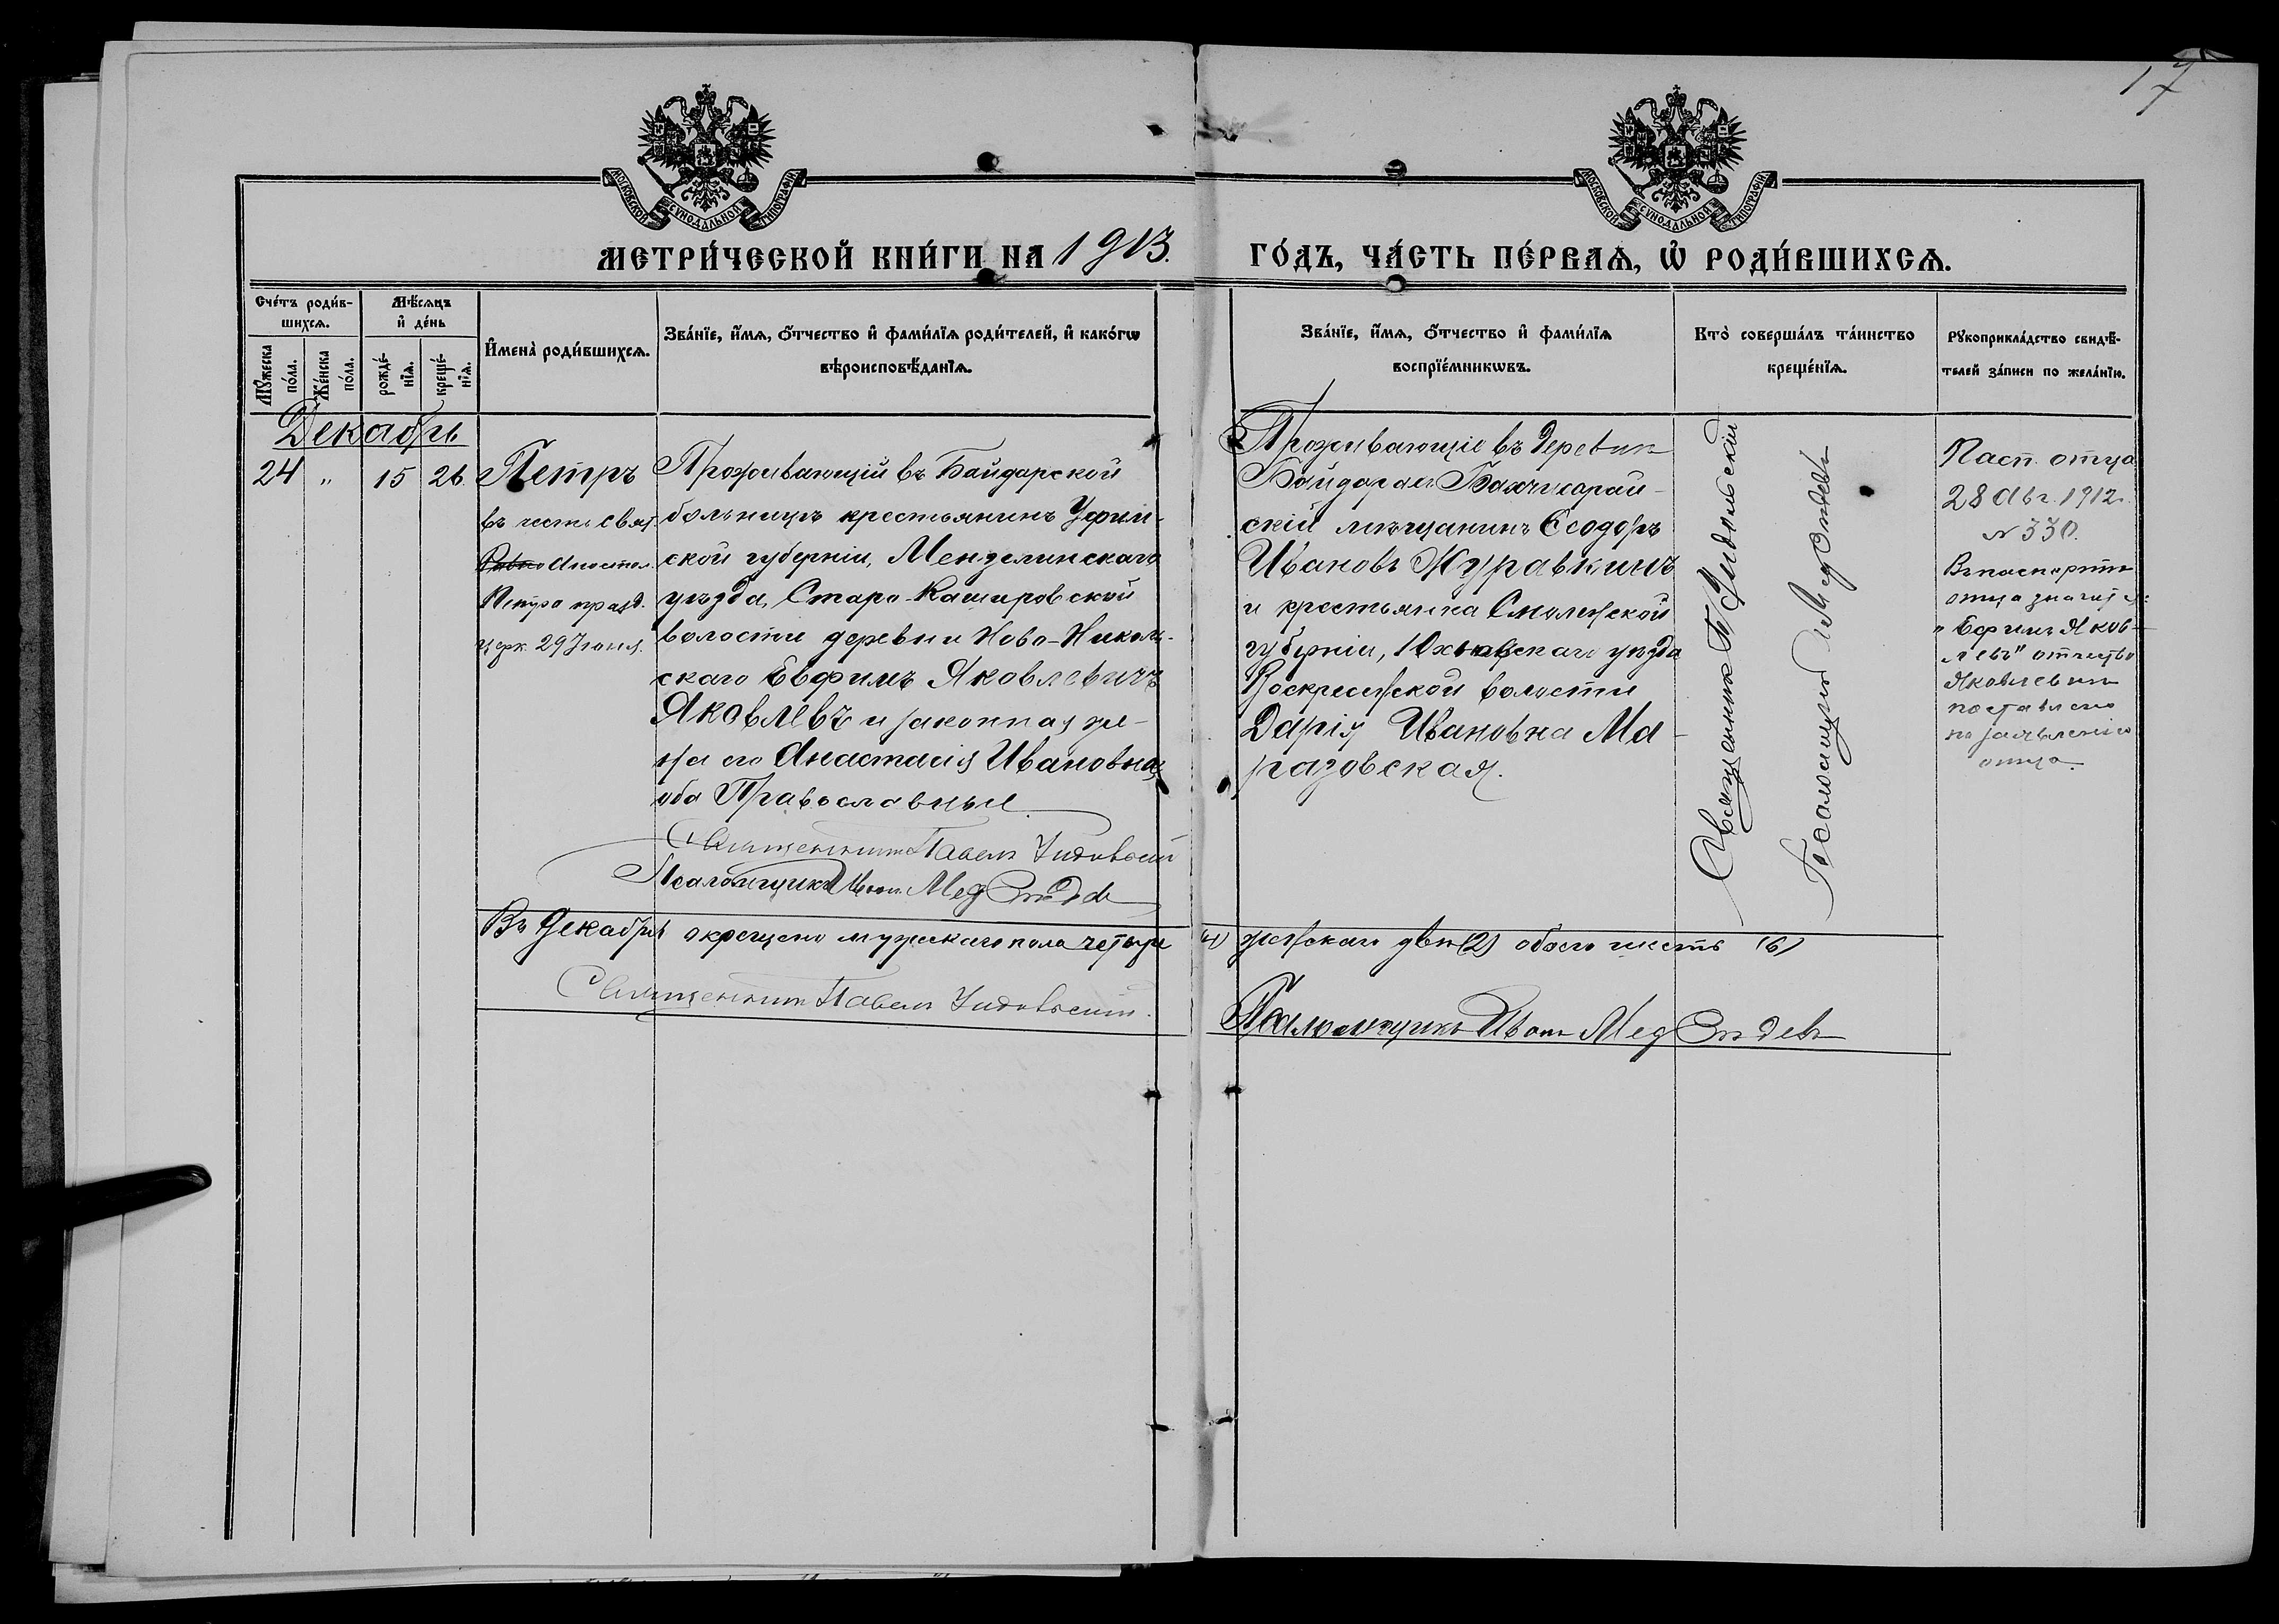 17
МОСКОВСКОЙ СУНОДАЛЬНОЙ ТИПОГРАФІИ
МОСКОВСКОЙ СУНОДАЛЬНОЙ ТИПОГРАФІИ
МЕТРИ́ЧЕСКОЙ КНИ́ГИ НА 1913.
ГО́ДЪ, ЧА́СТЬ ПЕ́РВАѦ, Ѿ РОДИ́ВШИХСѦ.
Сче́тъ роди́в-
шихсѧ.
Мꙋ́жеска
по́ла.
Же́нска
по́ла.
Мѣ́сѧцъ
и҆ де́нь
рожде́-
нїѧ.
креще́-
нїѧ.
И҆мена̀ роди́вшихсѧ.
Зва́нїе, и҆́мѧ, ѻ҆́тчество и҆ фами́лїѧ роди́телей, и҆ како́гѡ
вѣроисповѣ́данїѧ.
Зва́нїе, и҆́мѧ, ѻ҆́тчество и҆ фами́лїѧ
воспрїе́мникѡвъ.
Кто̀ соверша́лъ та́инство
креще́нїѧ.
Рꙋкоприкла́дство свидѣ́-
телей за́писи по жела́нїю.
Декабрь
24 " 15 26.
Петръ
въ честь свят.
Апостол.
Петра празд.
церк. 29 Іюня.
Проживающій въ Байдарской
больницѣ крестьянинъ Уфим-
ской губерніи, Мензелинскаго
уѣзда, Старо-Кашировской
волости деревни Ново-Николь-
скаго Евфимъ Яковлевичъ
Яковлевъ и законная же-
на его Анастасія Ивановна,
оба Православные.
Священникъ Павелъ
Псаломщикъ Иоан. Медвѣдев
Проживающіе въ деревнѣ
Байдарах Бахчисарай-
скій мѣщанинъ Ѳеодоръ
Ивановъ Журавкинъ
и крестьянка Смоленской
губерніи, Юхновскаго уѣзда
Воскресенской волости
Дарія Ивановна Ма-
разовская.
Священникъ П.
Псаломщикъ И. Медвѣдевъ
Пасп. отца
28 Авг. 1912 г.
№ 330.
Въ паспортѣ
отца значится:
"Ефимъ Яков-
левъ" отчество
Яковлевичъ
поставлено
по заявленію
отца.
Въ Декабрѣ окрещено мужескаго пола четыре (4) женскаго двѣ (2) обоего шесть (6)
Священникъ Павелъ
Псаломщикъ Иоан. Медвѣдевъ